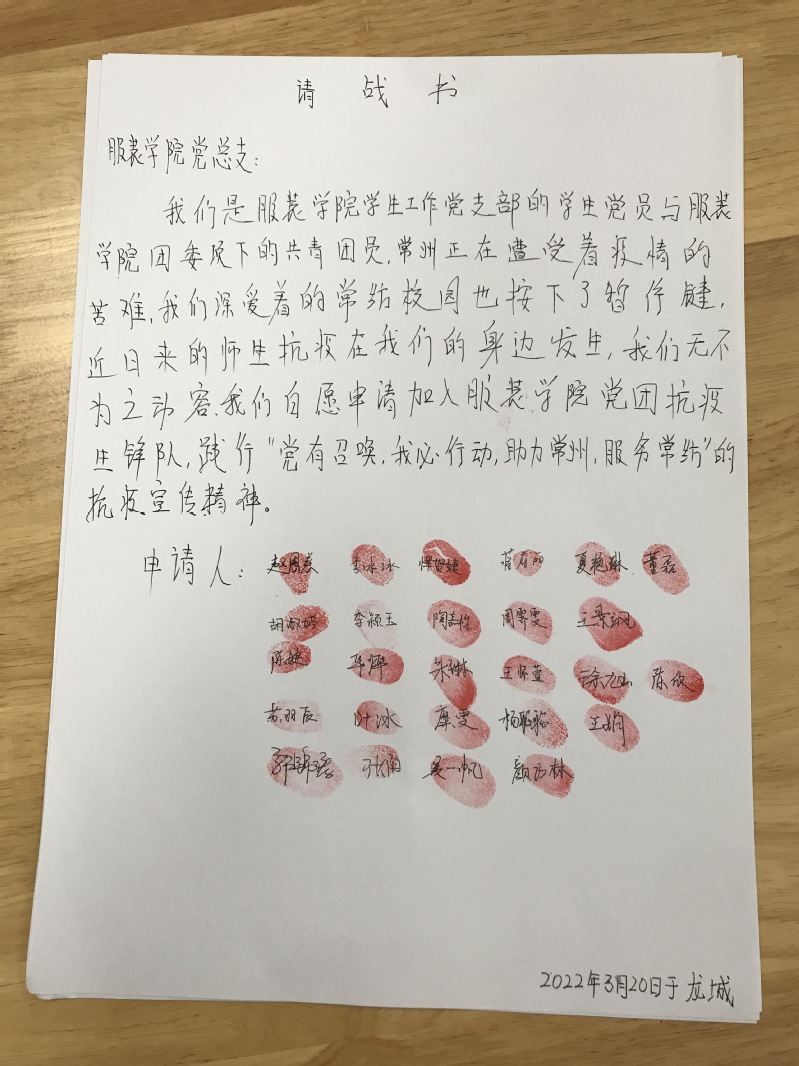 请战书
服装学院党总支:
我们是服装学院学生工作党支部的学生党员与服装
学院团委项下的共青团员,常州正在遭受着疫情的
苦难,我们深爱着的常纺校园也按下了暂停键,
近日来的师生抗疫在我们的身边发生,我们无不
为之动容.我们自愿申请加入服装学院党团抗疫
生锋队,践行“党有召唤,我必行动,助力常州,服务常纺”的
抗疫宣传精神。
申请人: 李冰冰 夏艳琳 董磊
李颖玉 陶志怡 周雯雯 王景枫
陈婕 华婷 朱琳 王怀萱 徐旭山 陈欣
叶冰 唐雯 杨聪聪 王娟
吴一帆
2022年3月20日于龙城